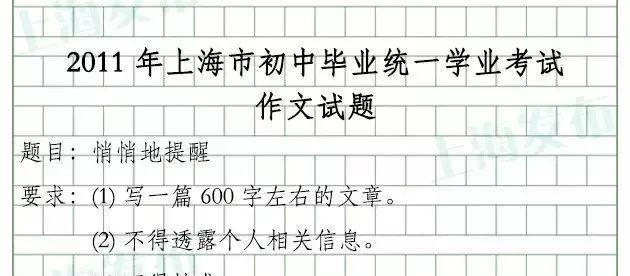 2011年上海市初中毕业统一学业考试
作文试题
题目：悄悄地提醒
要求：(1) 写一篇 600 字左右的文章。
(2) 不得透露个人相关信息。
上海发布
上海发布